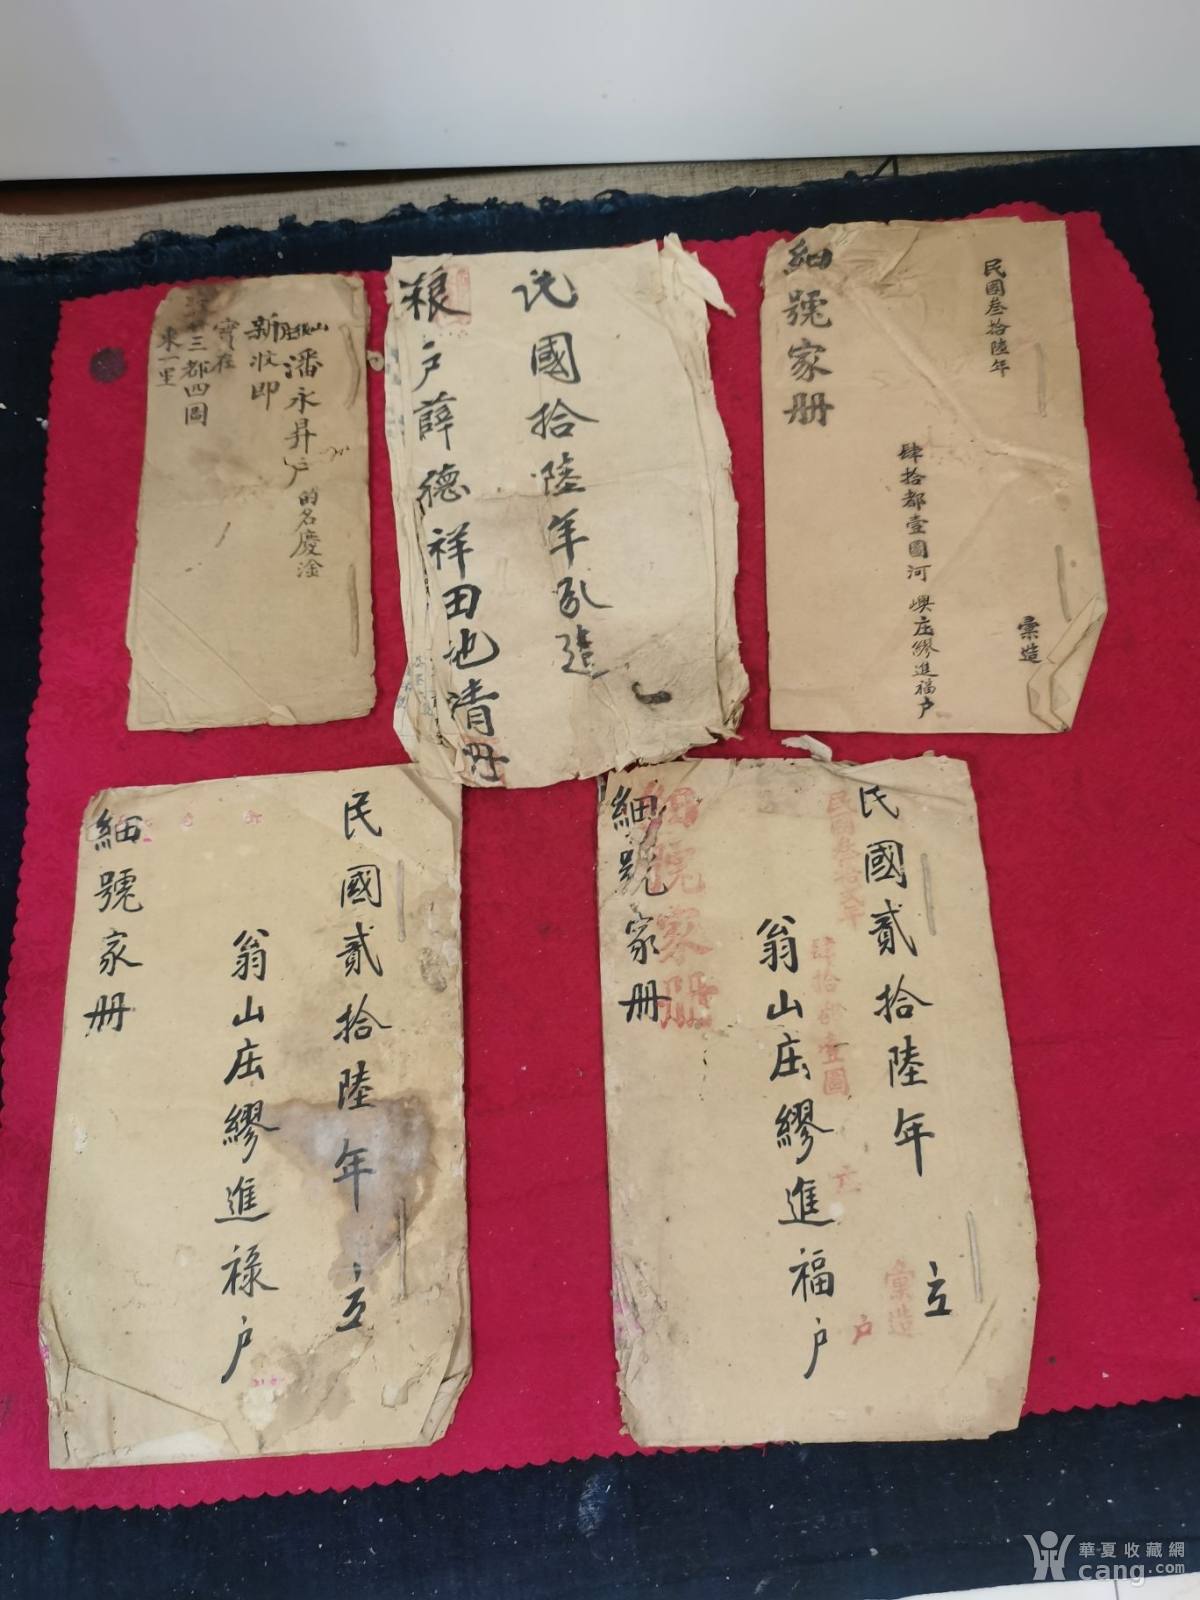 潘永昇户的名慶淦
新收即
實在
三都四圖
東一里
民國拾陸年
造
粮户薛德祥田地清册
民國叁拾陸年
彙造
肆拾都壹圖河嶼庄繆進福户
細號家册
民國貳拾陸年 立
翁山庄繆進禄户
細號家册
民國貳拾陸年 立
翁山庄繆進福户
細號家册
肆拾都壹圖
彙造
户
細號家册
華夏收藏網
cang.com